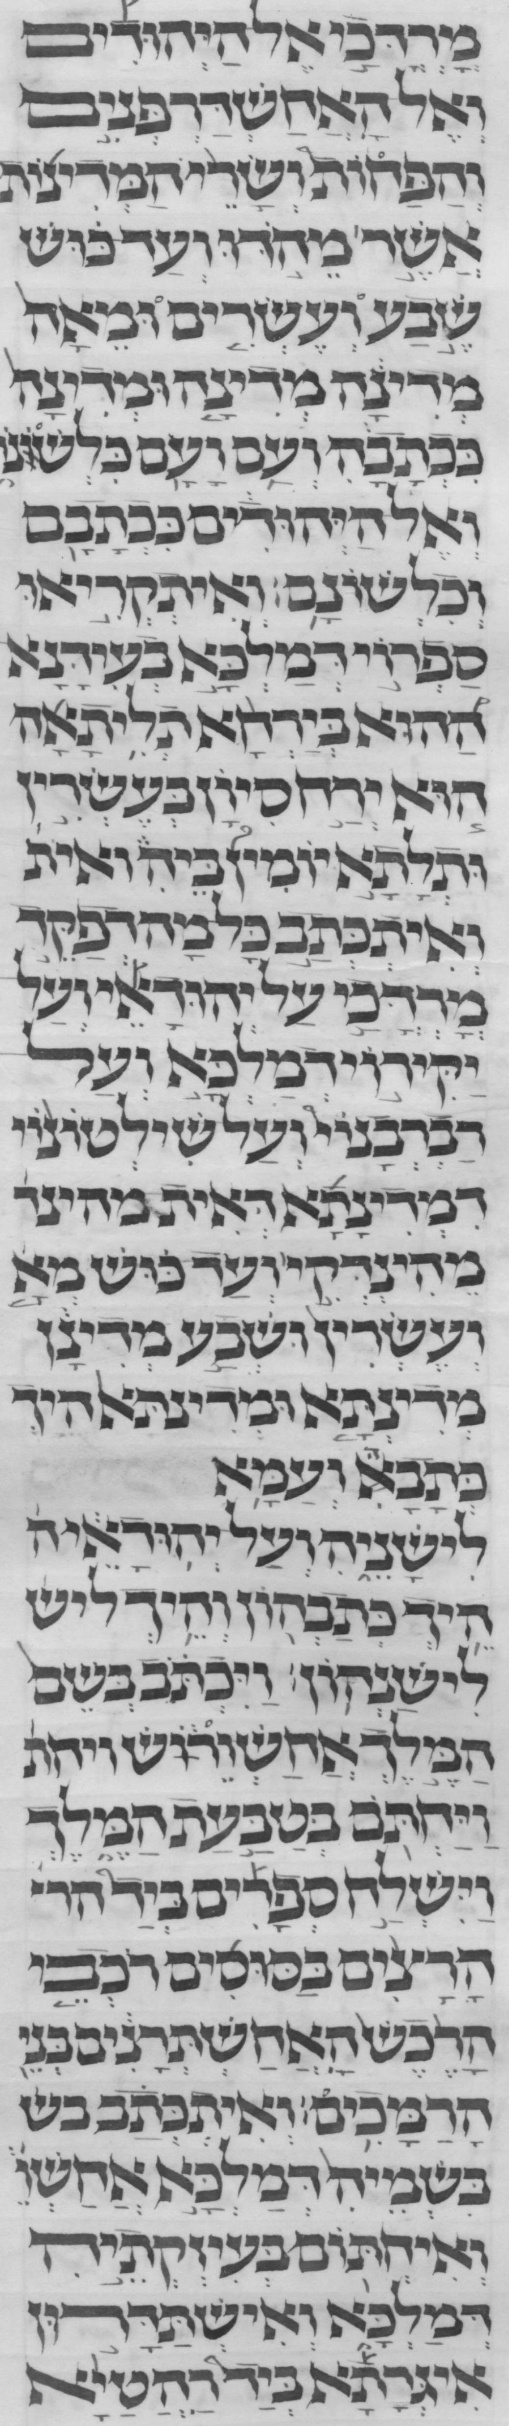 מָרְדֳּכַי אֶל הַיְּהוּדִים
וְאֶל הָאֲחַשְׁדַּרְפְּנִים
וְהַפַּחוֹת וְשָׂרֵי הַמְּדִינוֹת
אֲשֶׁר מֵהֹדּוּ וְעַד כּוּשׁ
שֶׁבַע וְעֶשְׂרִים וּמֵאָה
מְדִינָה מְדִינָה וּמְדִינָה
כִּכְתָבָהּ וְעַם וָעָם כִּלְשׁוֹנוֹ
וְאֶל הַיְּהוּדִים כִּכְתָבָם
וְכִלְשׁוֹנָם׃ וְאִיתְקְרִיאוּ
סַפְרוֹי דְּמַלְכָּא בְּעִידָּנָא
הַהוּא בְּיַרְחָא תְּלִיתָאָה
הוּא יְרַח סִיוָן בְּעֶשְׂרִין
וּתְלָתָא יוֹמִין בֵּיהּ ואית
וְאִיתְכְּתַב כָּל מַה דְפַקֵּד
מָרְדֳּכַי עַל יְהוּדָאֵי וְעַל
יַקִּירוֹי דְמַלְכָּא וְעַל
רַבְרְבָנוֹי וְעַל שִׁילְטוֹנוֹי
דִמְדִינָתָא דְּאִית מהינד
מֵהִינְדְּקֵי וְעַד כּוּשׁ מְאָה
וְעֶשְׂרִין וּשְׁבַע מְדִינָן
מְדִינְתָּא וּמְדִינְתָּא הֵיךְ
כְּתָבָא וְעַמָּא
לִישָׁנֵיהּ וְעַל יְהוּדָאֵיה
הֵיךְ כְּתָבְהוֹן וְהֵיךְ ליש
לִישָׁנְהוֹן׃ וַיִּכְתֹּב בְּשֵׁם
הַמֶּלֶךְ אֲחַשְׁוֵרוֹשׁ ויחת
וַיַּחְתֹּם בְּטַבַּעַת הַמֶּלֶךְ
וַיִּשְׁלַח סְפָרִים בְּיַד הרי
הָרָצִים בַּסּוּסִים רֹכְבֵי
הָרֶכֶשׁ הָאֲחַשְׁתְּרָנִים בְּנֵי
הָרַמָּכִים׃ וְאִיתְכְּתַב בש
בִּשְׁמֵיהּ דְּמַלְכָּא אֲחַשְׁוֵ
וְאִיחְתּוֹם בְּעִיזְקְתֵיהּ
דְּמַלְכָּא וְאִישְׁתַּדָּרוּן
אִיגְּרָתָא בְּיַד רַהֲטַיָּא